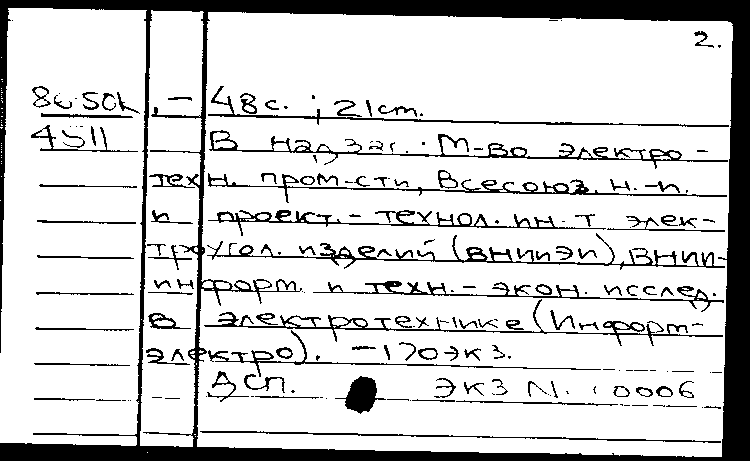 2.
, – 48 с. ; 21 см.
4511 В надзаг.: М-во электро-
техн. пром-сти, Всесоюз. н.-и.
и проект.-технол. ин-т элек-
троугол. изделий (ВНИИЭИ), ВНИИ
информ. и техн.-экон. исслед.
в электротехнике (Информ-
электро). – 170 экз.
ДСП. Экз N. 0006